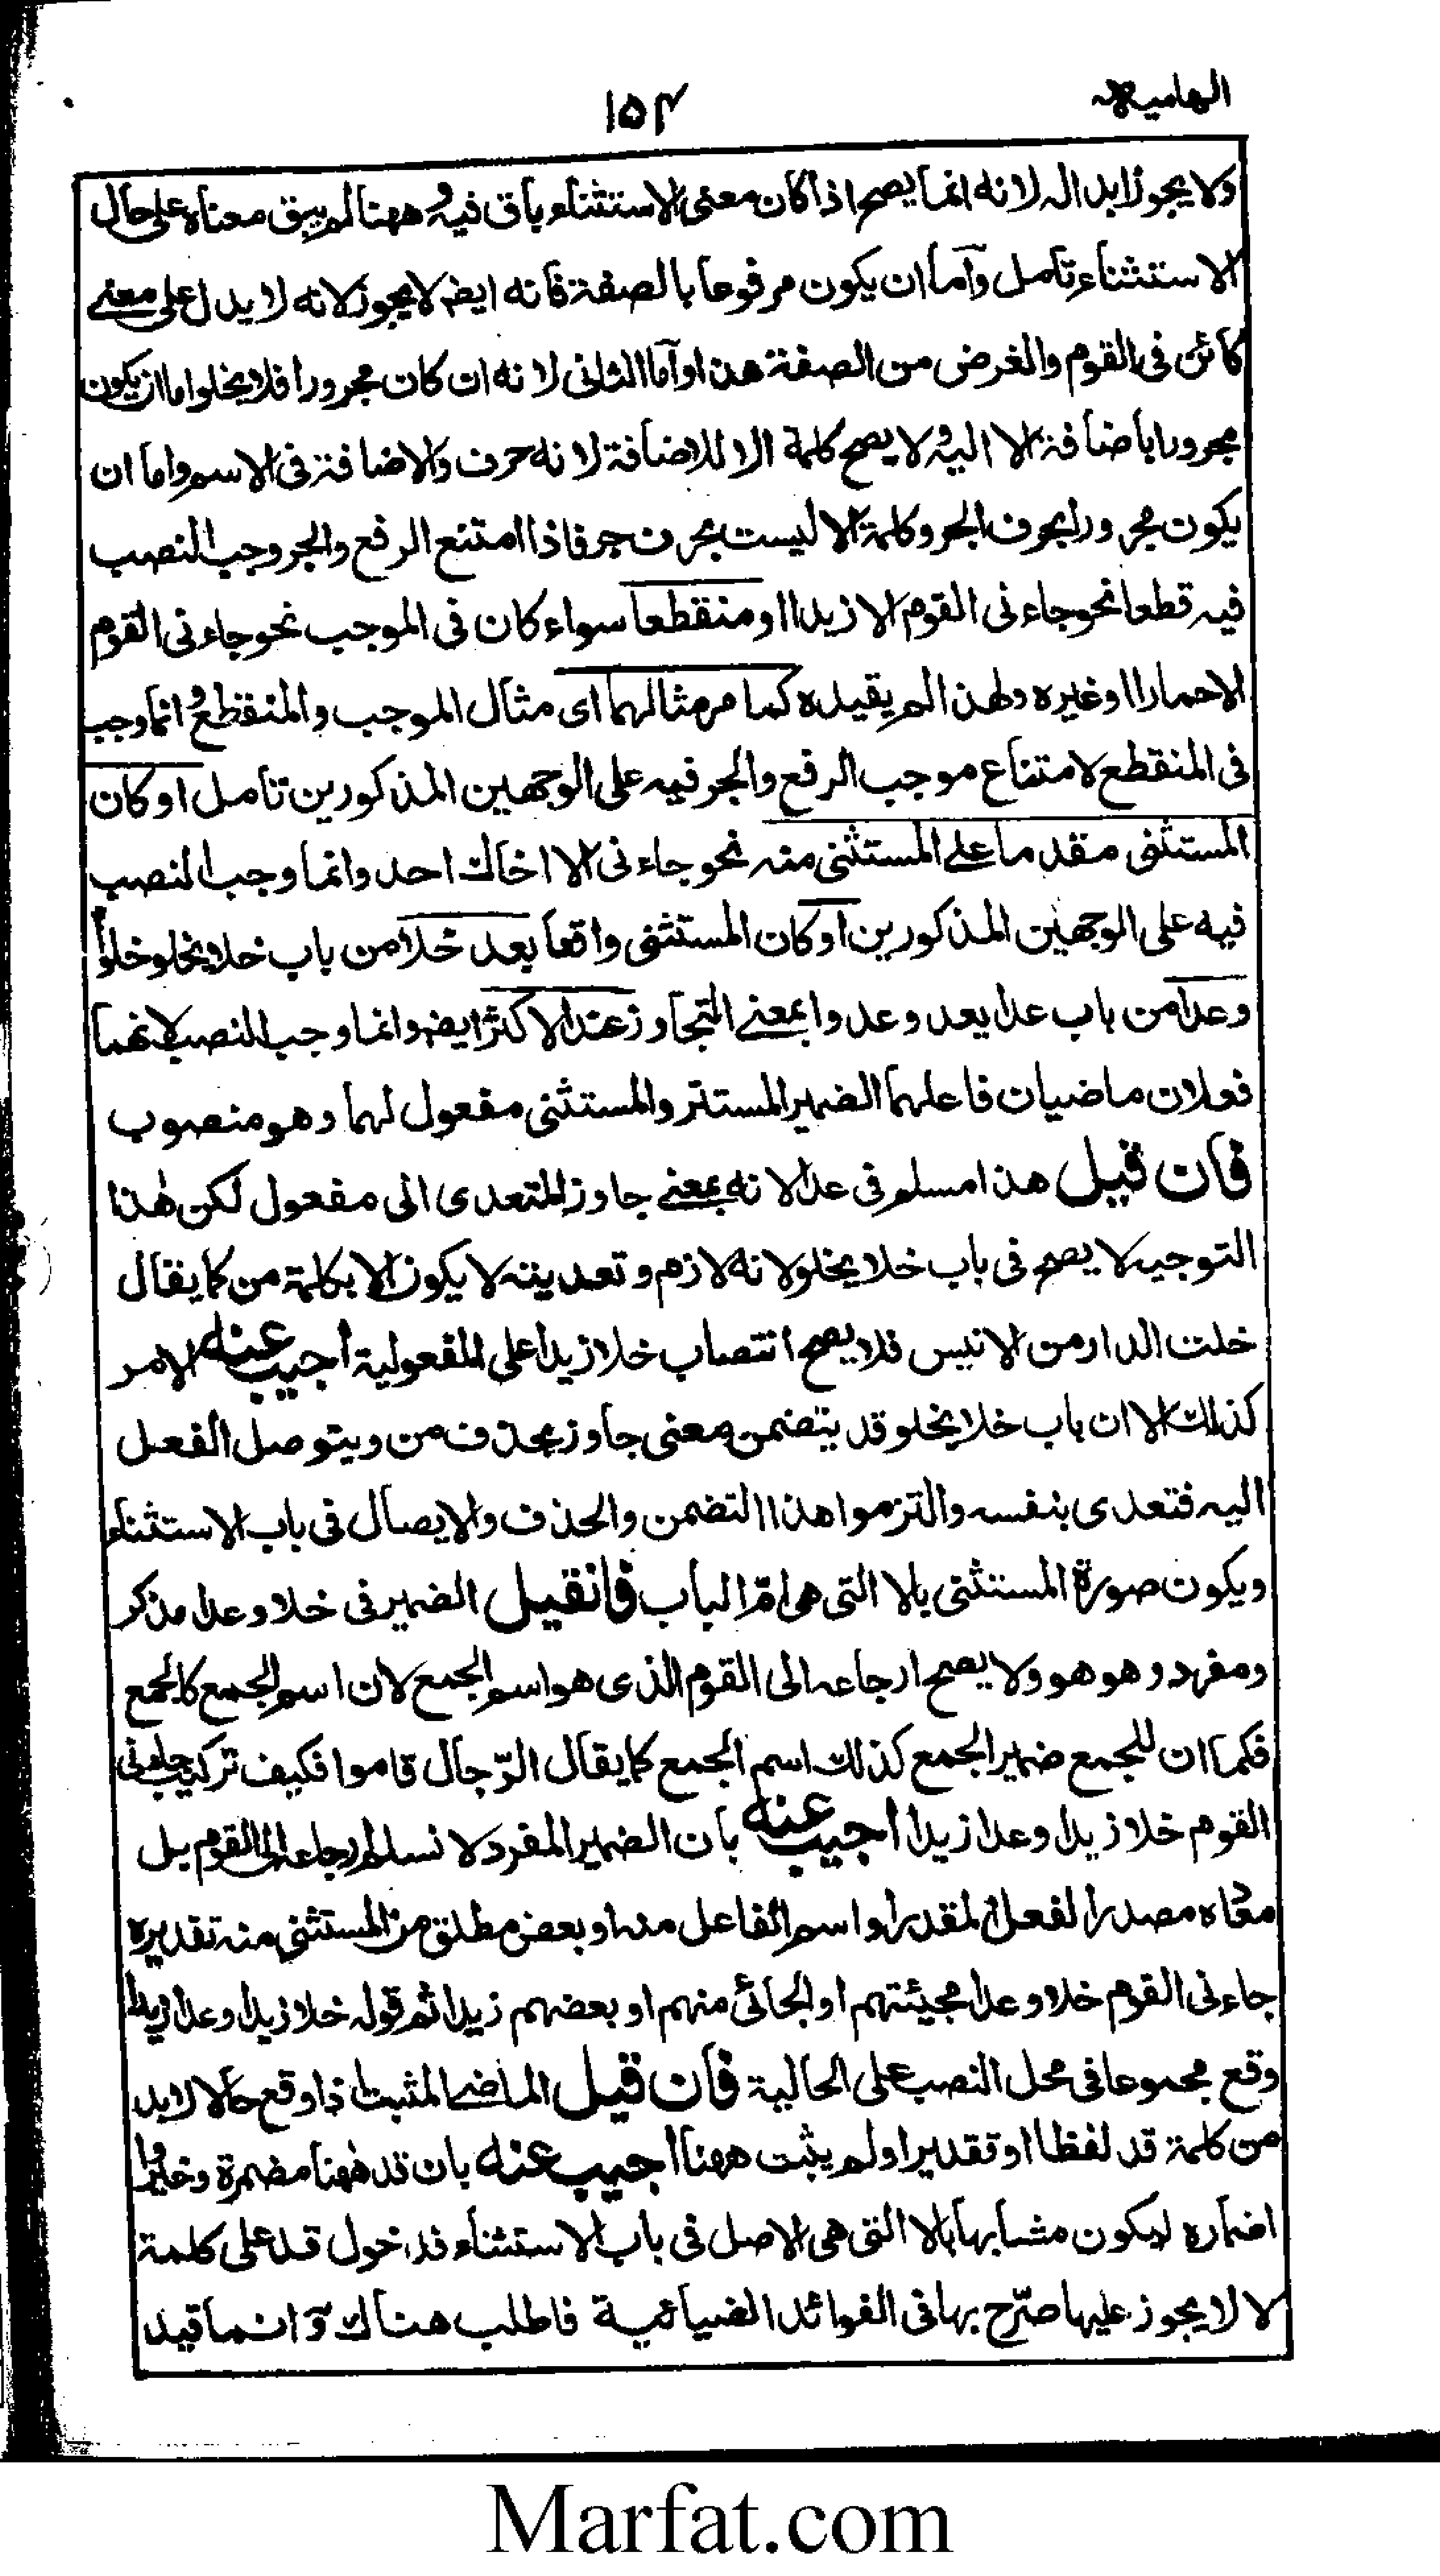 الهاميه
١٥٣
ولا يجوز ابداله لانه انما يصح اذا كان معنى الاستثناء باق فيه وههنا لم يبق معناه على حال
الاستثناء تأمل واما ان يكون مرفوعا بالصفة فانه ايضا لا يجوز لانه لا يدل على معنى
كائن فى القوم والغرض من الصفة هذا واما الثانى لانه ان كان مجرورا فلا يخلوا اما ان يكون
مجرورا باضافة الا اليه ولا يصح كلمة الا للاضافة لانه حرف والاضافة فى الاسم واما ان
يكون مجرورا بحرف الجر وكلمة الا ليست بحرف جر فاذا امتنع الرفع والجر وجب النصب
فيه قطعا نحو جاءنى القوم الا زيدا او منقطعا سواء كان فى الموجب نحو جاءنى القوم
الا حمارا او غيره ولهذا لم يقيده كما مر مثالهما اى مثال الموجب والمنقطع وانما وجب
فى المنقطع لامتناع موجب الرفع والجر فيه على الوجهين المذكورين تأمل او كان
المستثنى مقدما على المستثنى منه نحو جاءنى الا اخاك احد وانما وجب النصب
فيه على الوجهين المذكورين او كان المستثنى واقعا بعد خلا من باب خلا يخلو خلوا
وعدا من باب عدا يعدو عدوا بمعنى التجاوز عند الاكثر ايضا وانما وجب النصب لانهما
فعلان ماضيان فاعلهما الضمير المستتر والمستثنى مفعول لهما وهو منصوب
فان قيل هذا مسلم فى عدا لانه بمعنى جاوز المتعدى الى مفعول لكن هذا
التوجيه لا يصح فى باب خلا يخلو لانه لازم وتعديته لا يكون الا بكلمة من كما يقال
خلت الدار من الانيس فلا يصح انتصاب خلا زيدا على المفعولية أجيب عنه الامر
كذلك الا ان باب خلا يخلو قد يتضمن معنى جاوز بحذف من ويتوصل الفعل
اليه فتعدى بنفسه والتزموا هذا التضمن والحذف والايصال فى باب الاستثناء
ويكون صورة المستثنى بالا التى هى امّ الباب فان قيل الضمير فى خلا وعدا مذكر
ومفرد وهو هو ولا يصح ارجاعه الى القوم الذى هو اسم الجمع لان اسم الجمع كالجمع
فكما ان للجمع ضمير الجمع كذلك اسم الجمع كما يقال الرّجال قاموا فكيف تركيب جاءنى
القوم خلا زيدا وعدا زيدا أجيب عنه بان الضمير المفرد لا نسلم ارجاعه الى القوم بل
معاه مصدر الفعل المقدر او اسم الفاعل منه او بعض مطلق من المستثنى منه تقديره
جاءنى القوم خلا وعدا مجيئتهم او الجائى منهم او بعضهم زيدا ثم قوله خلا زيدا وعدا زيدا
وقع مجموعا فى محل النصب على الحالية فان قيل الماضى المثبت اذا وقع حالا لا بد
من كلمة قد لفظا او تقديرا ولم يثبت ههنا اجيب عنه بان قد ههنا مضمرة
اضماره ليكون مشابها بالا التى هى الاصل فى باب الاستثناء فدخول قد على كلمة
لا لا يجوز عليها صرّح بها فى الفوائد الضيائية فاطلب هناك وانما قيد
Marfat.com